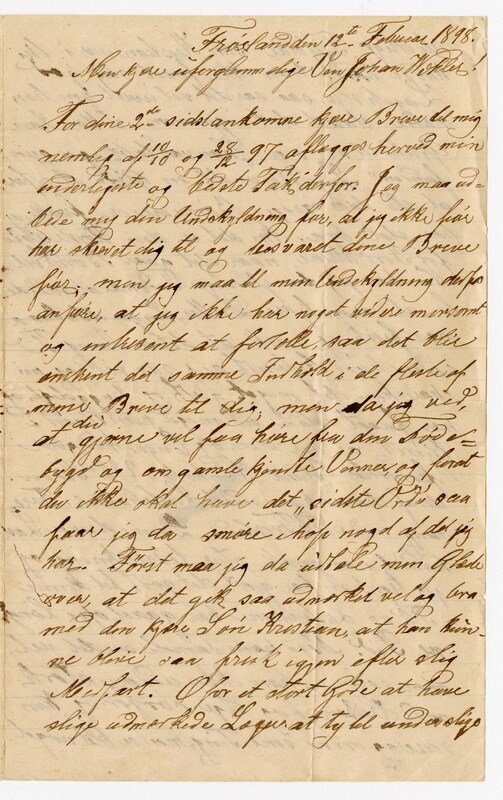 Frøsland den 12te Februar 1898.
Min kjære uforglemmelige Ven Johan
For dine 2de sidstankomne kjære Breve til mig
nemlig af 10/10 og 28/12 97 aflægges herved min
inderligste og bedste Tak derfor. Jeg maa ud-
bede mig din Undskyldning for, at jeg ikke før
har skrevet dig til og besvaret dine Breve
før; men jeg maa til min Undskyldning derfor
anføre, at jeg ikke her noget videre morsomt
og interesant at fortælle, saa det blir
omtrent det samme Indhold i de fleste af
mine Breve til dig; men da jeg ved,
at du gjerne vil faa høre fra din Føde-
bygd og om gamle kjendte Venner, og forat
du ikke skal have det „sidste Ord" saa
faar jeg da smøre ihop nogd af det jeg
har. Først maa jeg da udtale min Glæde
over, at det gik saa udmærket vel og bra
med den kjære Søn Kristian, at han kun-
ne blive saa frisk igjen efter slig
Medfart. O for et stort Gode at have
slige udmærkede Læger at ty til under slige